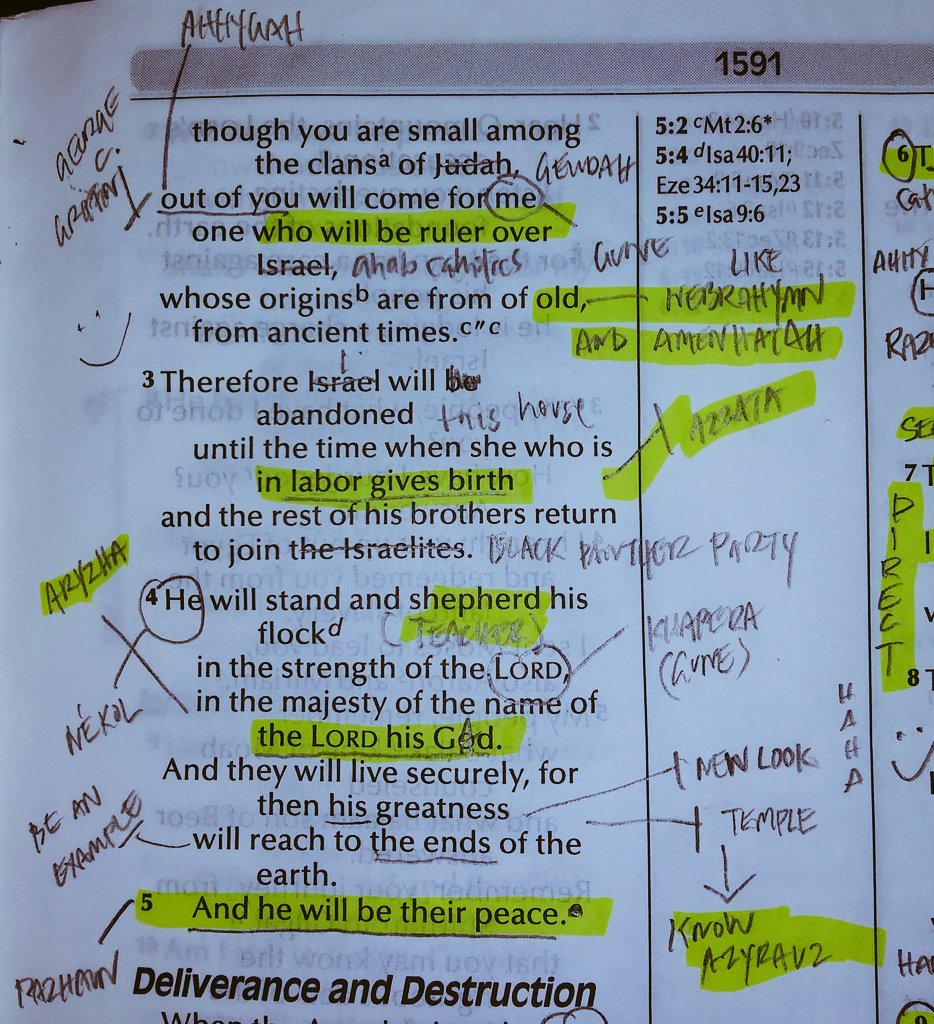 AHHYGAH
1591
GEORGE
C.
GRATION
though you are small among
the clansᵃ of Judah, GEWDAH
out of you will come for me
one who will be ruler over
Israel, ahab cahifres
GUNE
LIKE
whose originsᵇ are from of old, NEBRAHYMN
from ancient times.ᶜ"ᶜ AND AMENHATAH
3 Therefore Israel will be
abandoned this house
until the time when she who is
AZZATA
in labor gives birth
and the rest of his brothers return
to join the Israelites. BLACK PANTHER PARTY
ARYZHA
4 He will stand and shepherd his
flockᵈ (TEACHER)
KHAPERA
(GUNE)
in the strength of the LORD,
in the majesty of the name of
NÉKOL
the LORD his God.
And they will live securely, for
NEW LOOK
then his greatness
BE AN
EXAMPLE
TEMPLE
will reach to the ends of the
earth.
5 And he will be their peace.ᵉ
KNOW
AZYRAUZ
PAZHAWN
Deliverance and Destruction
5:2 ᶜMt 2:6*
5:4 ᵈIsa 40:11;
Eze 34:11-15,23
5:5 ᵉIsa 9:6
HAHA
6 T
AHITY
7 T
DIRECT
8 T
9